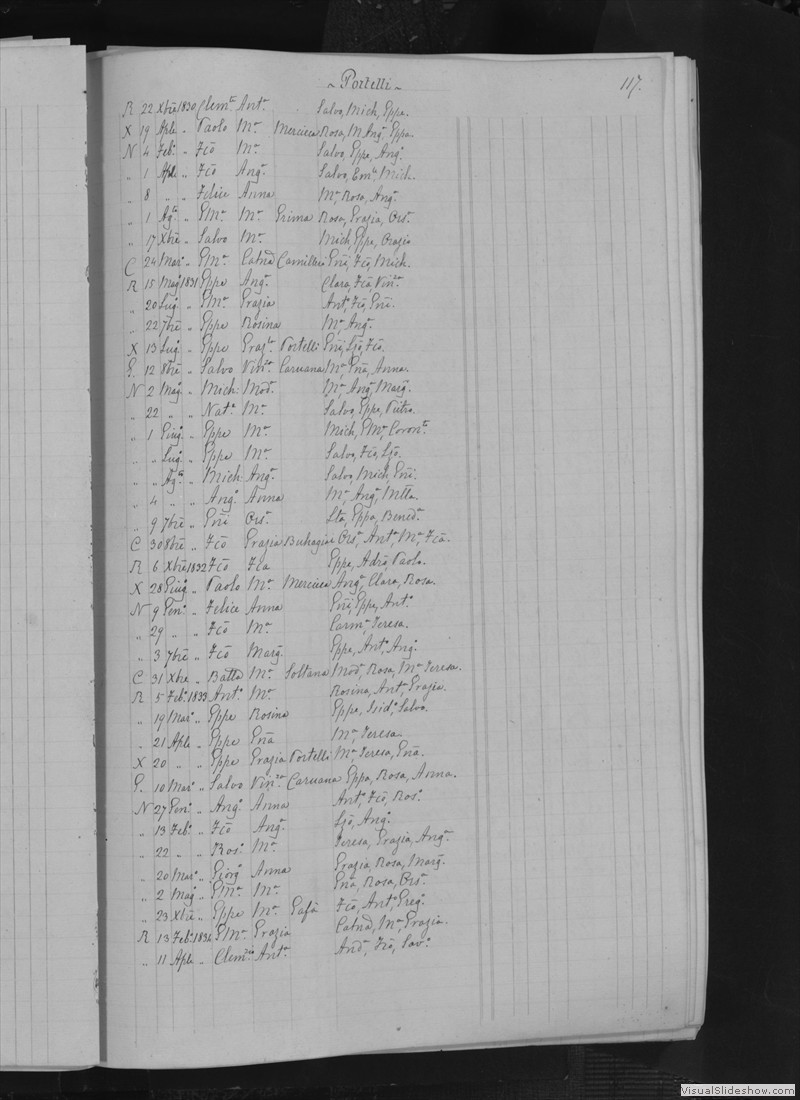 ~ Portelli ~ 117.
R 22 Xbrē 1830 Clem.te Ant.a Salvo, Mich, Eppa.
X 19 Aple „ Paolo M.a Mercieca Rosa, M. Ang.a Eppa
N 4 Feb.o „ Fcō M.a Salvo, Eppe, Ang.o
„ 1 Aple „ Fcō Ang.a Salvo, Em.le Mich.
„ 8 „ „ Felice Anna M.a Rosa, Ang.a
„ 1 Ag.to „ GM.a M.a Grima Rosa, Grazia, Ors.a
„ 17 Xbrē „ Salvo M.a Mich, Eppe, Orazio
C 24 Mar.o „ GM.a Catnā Camilleri Gñi, Fcō, Mich.
R 15 Mag.o 1831 Eppe Ang.a Clara, Fcā, Vin.za
„ 20 Lug.o „ GM.a Grazia Ant.o, Fcō, Gñi.
„ 22 7brē „ Eppe Rosina M.a, Ang.a
X 13 Lug.o „ Eppe Graz.a Portelli Gñi, Ljō, Fcō.
G. 12 8brē „ Salvo Vin.za Caruana M.a Gñā, Anna.
N 2 Mag.o „ Mich. Mod.a M.a Ang.a Marg.a
„ 22 „ „ Nat.e M.a Salvo, Eppe, Pietro.
„ 1 Giug.o „ Eppe M.a Mich, GM.a Coron.to
„ „ Lug.o „ Eppe M.a Salvo, Fcō, Ljō.
„ „ Ag.to „ Mich. Ang.a Salvo, Mich, Gñi.
„ 4 „ „ Ang.o Anna M.a Ang.a Mttā.
„ 9 7brē „ Gñi Ors.a Eppa, Bened.a
C 30 8brē „ Fcō Grazia Buhagiar Ors.a, Ant.a M.a, Fcā.
R 6 Xbrē 1832 Fcō Fca Eppe, Adrō, Paolo.
X 28 Giug.o „ Paolo M.a Mercieca Ang.a, Clara, Rosa.
N 9 Gen.o „ Felice Anna Gñi, Eppe, Ant.o
„ 29 „ „ Fcō M.a Carm.a Teresa.
„ 3 7brē „ Fcō Marg.a Eppe, Ant.o Ang.o
C 31 Xbrē „ Battā M.a Soltana Mod.a, Rosa, M.a Teresa.
R 5 Feb.o 1833 Ant.o M.a Rosina, Ant.a Grazia.
„ 19 Mar.o „ Eppe Rosina Eppe, Isid.o Salvo.
„ 21 Aple „ Eppe Gñā M.a Teresa
X 20 „ „ Eppe Grazia Portelli M.a Teresa, Gñā.
G. 10 Mar.o „ Salvo Vin.za Caruana Eppa, Rosa, Anna.
N 27 Gen.o „ Ang.o Anna Ant.o Fcō, Ros.o
„ 13 Feb.o „ Fcō Ang.a Ljō, Ang.o
„ 22 „ „ Ros.o M.a Teresa, Grazia, Ang.a
„ 20 Mar.o „ Giorg.o Anna Grazia, Rosa, Marg.a
„ 2 Mag.o „ GM.a M.a Gñā, Rosa, Ors.a
„ 23 Xbrē „ Eppe M.a Gafà Fcō, Ant.o, Greg.o
R 13 Feb.o 1834 GM.a Grazia Catnā, M.a, Grazia.
„ 11 Aple „ Clem.te Ant.a And.a, Fcō, Sav.o
VisualSlideshow.com